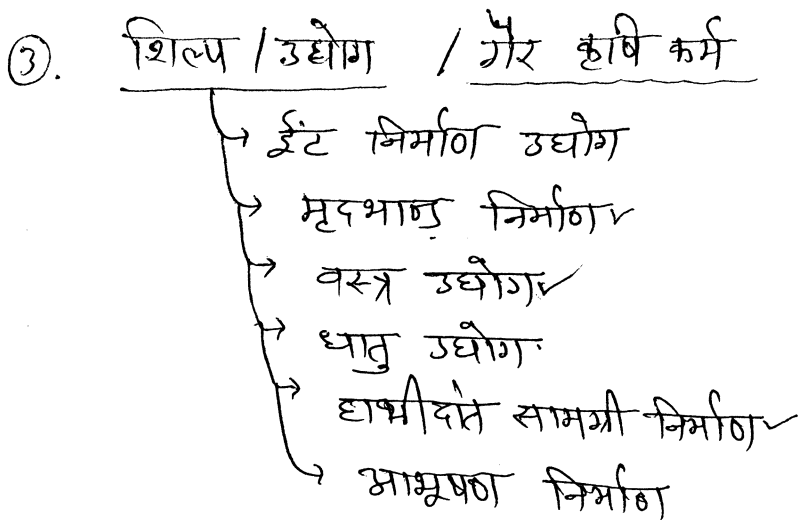 ③. शिल्प / उद्योग / गैर कृषि कर्म
→ ईंट निर्माण उद्योग
→ मृदभाण्ड निर्माण ✓
→ वस्त्र उद्योग ✓
→ धातु उद्योग
→ हाथीदांत सामग्री निर्माण ✓
→ आभूषण निर्माण